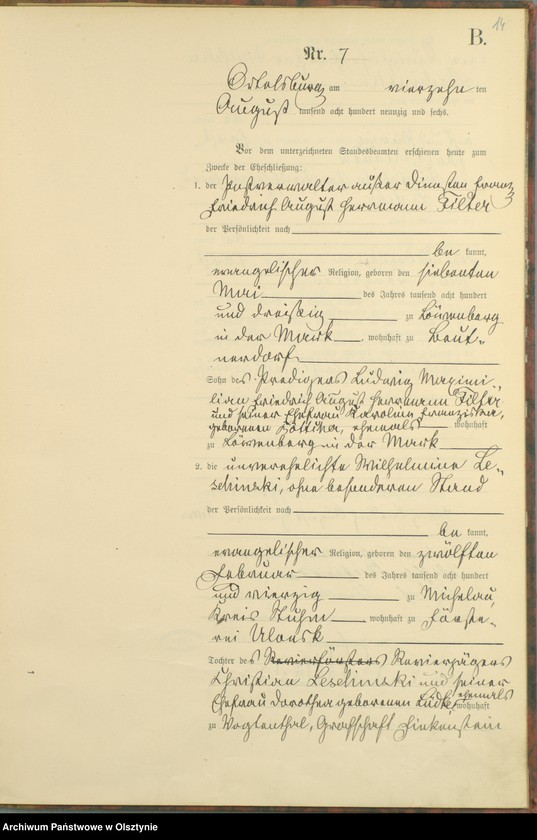 14
B.
Nr. 7
Ortelsburg am vierzehn ten
August tausend acht hundert neunzig und sechs.
Vor dem unterzeichneten Standesbeamten erschienen heute zum
Zwecke der Eheschließung:
1. der Postverwalter außer Diensten Franz
Friedrich August Herrmann Filter
der Persönlichkeit nach
be kannt,
evangelischer Religion, geboren den siebenten
Mai des Jahres tausend acht hundert
und dreißig zu Löwenberg
in der Mark, wohnhaft zu Beut-
nerdorf
Sohn des Predigers Ludwig Maximi-
lian Friedrich August Herrmann Filter
und seiner Ehefrau Karoline Franziska,
geborenen ehemals wohnhaft
zu Löwenberg in der Mark
2. die unverehelichte Wilhelmine Le-
selinski, ohne besonderen Stand
der Persönlichkeit nach
be kannt,
evangelischer Religion, geboren den zwölften
Februar des Jahres tausend acht hundert
und vierzig zu Michelau,
Kreis Stuhm wohnhaft zu Förste-
rei Ulonsk
Tochter des Revierförsters Revierjägers
Christian Leselinski und seiner
Ehefrau Dorothea geborenen Lüdke, ehemals wohnhaft
zu Vogtenthal, Grafschaft Finkenstein
Archiwum Państwowe w Olsztynie